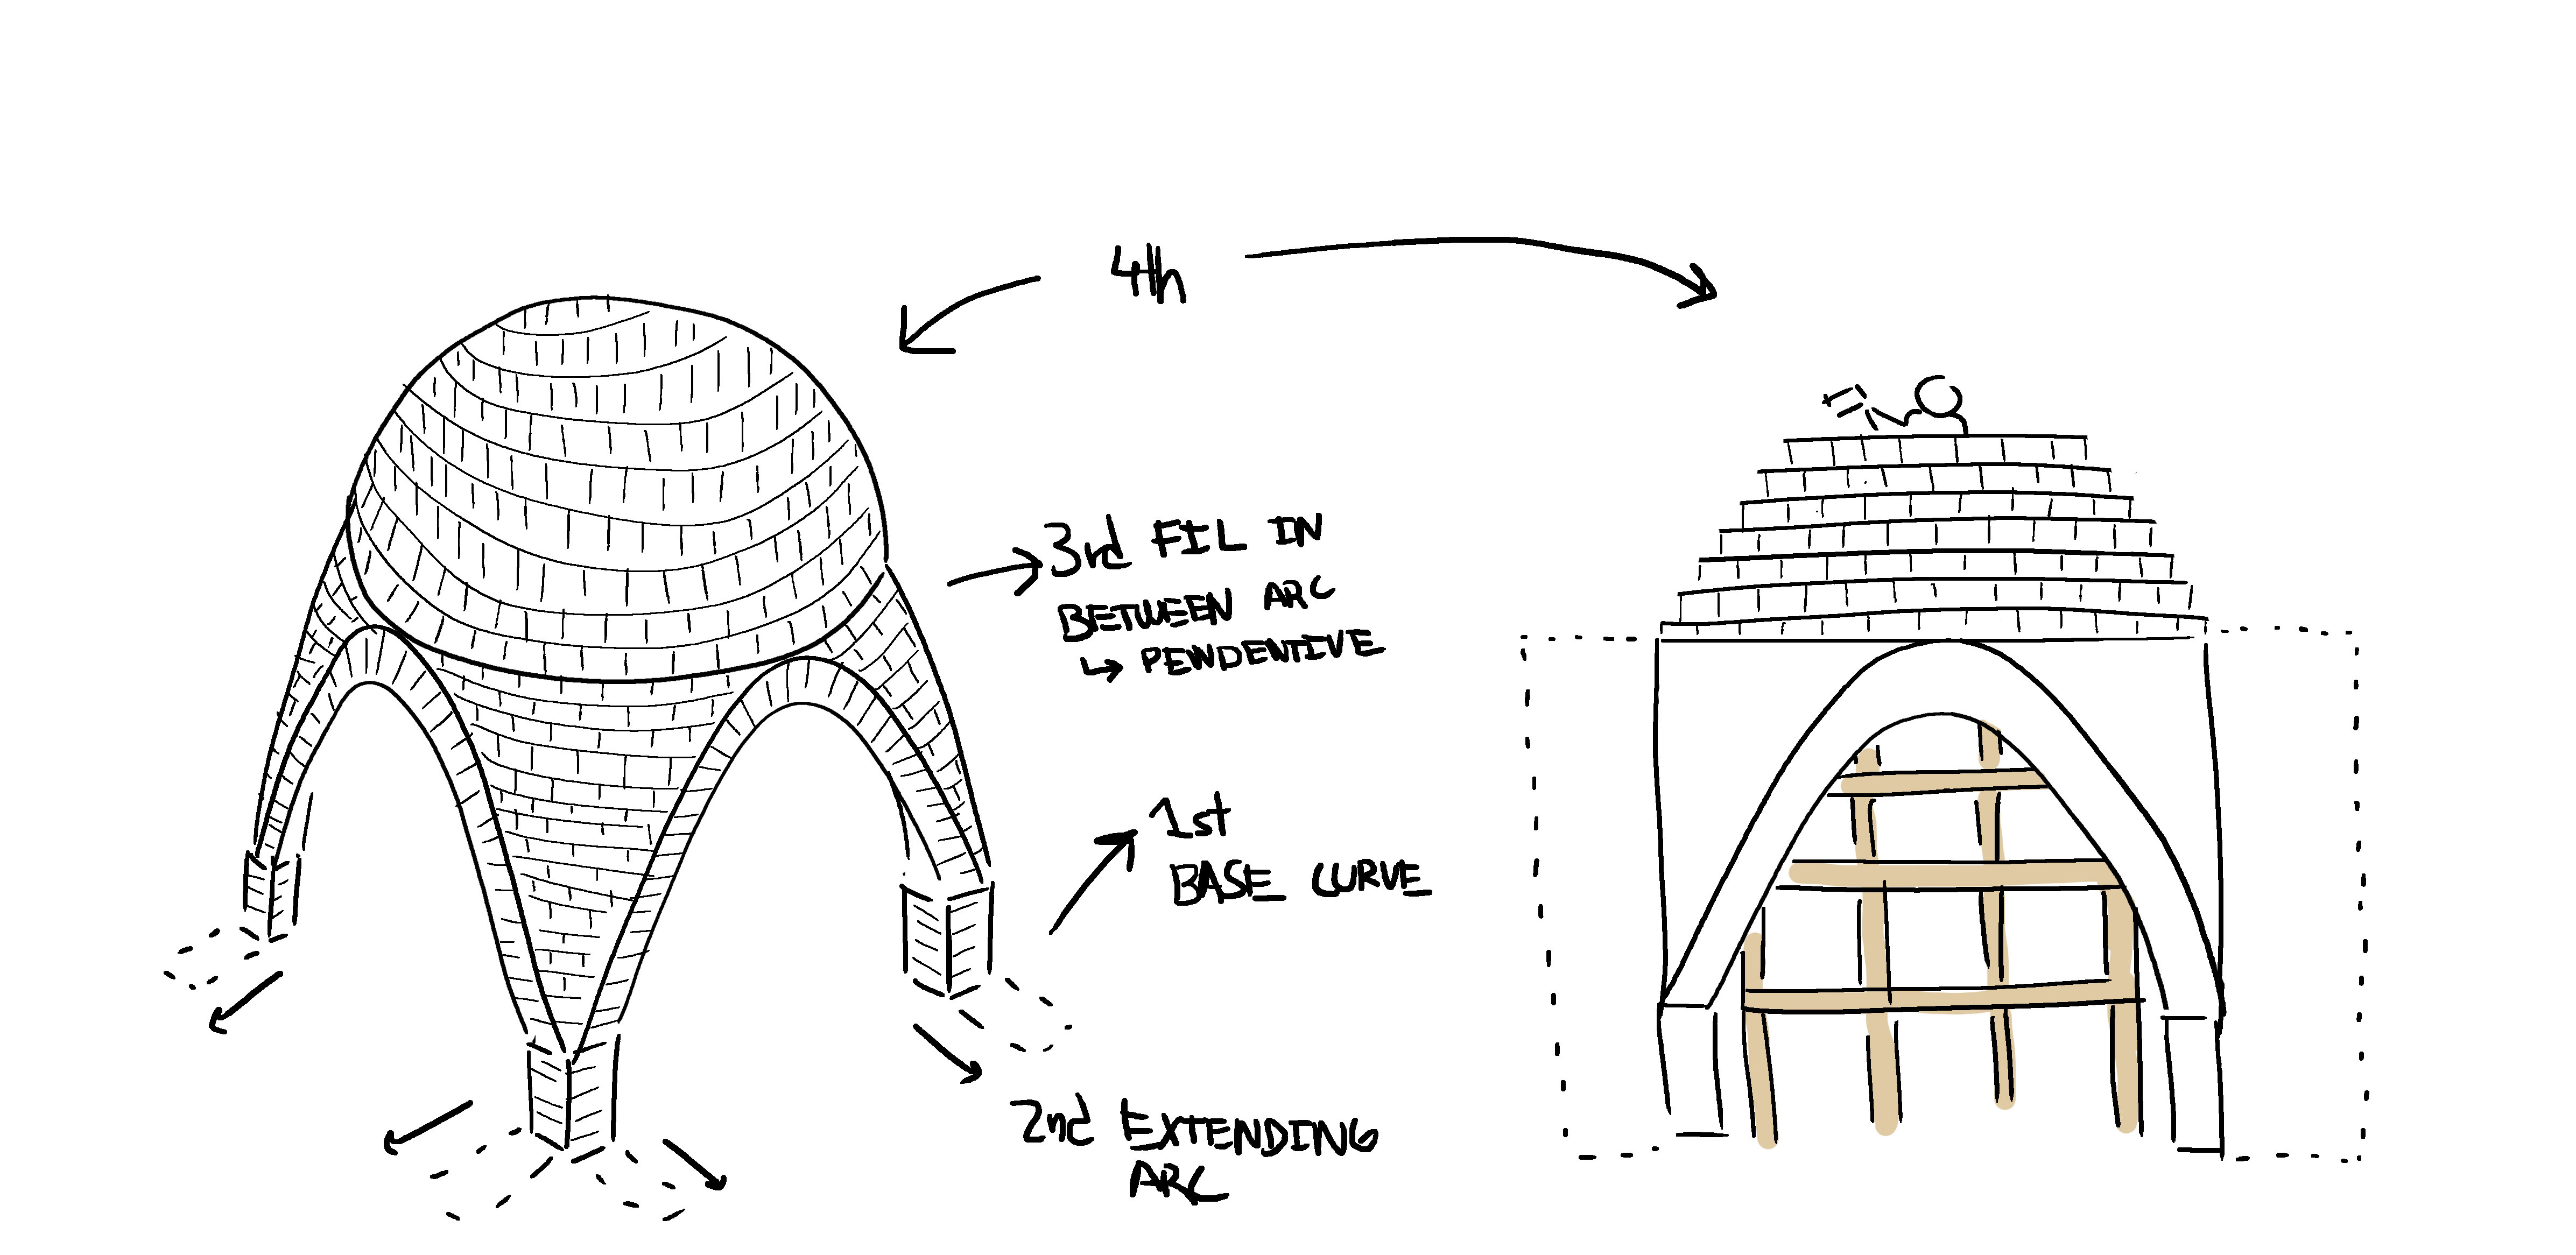 4th
3rd FIL IN
BETWEEN ARC
↳ PENDENTIVE
1st
BASE CURVE
2nd EXTENDING
ARC